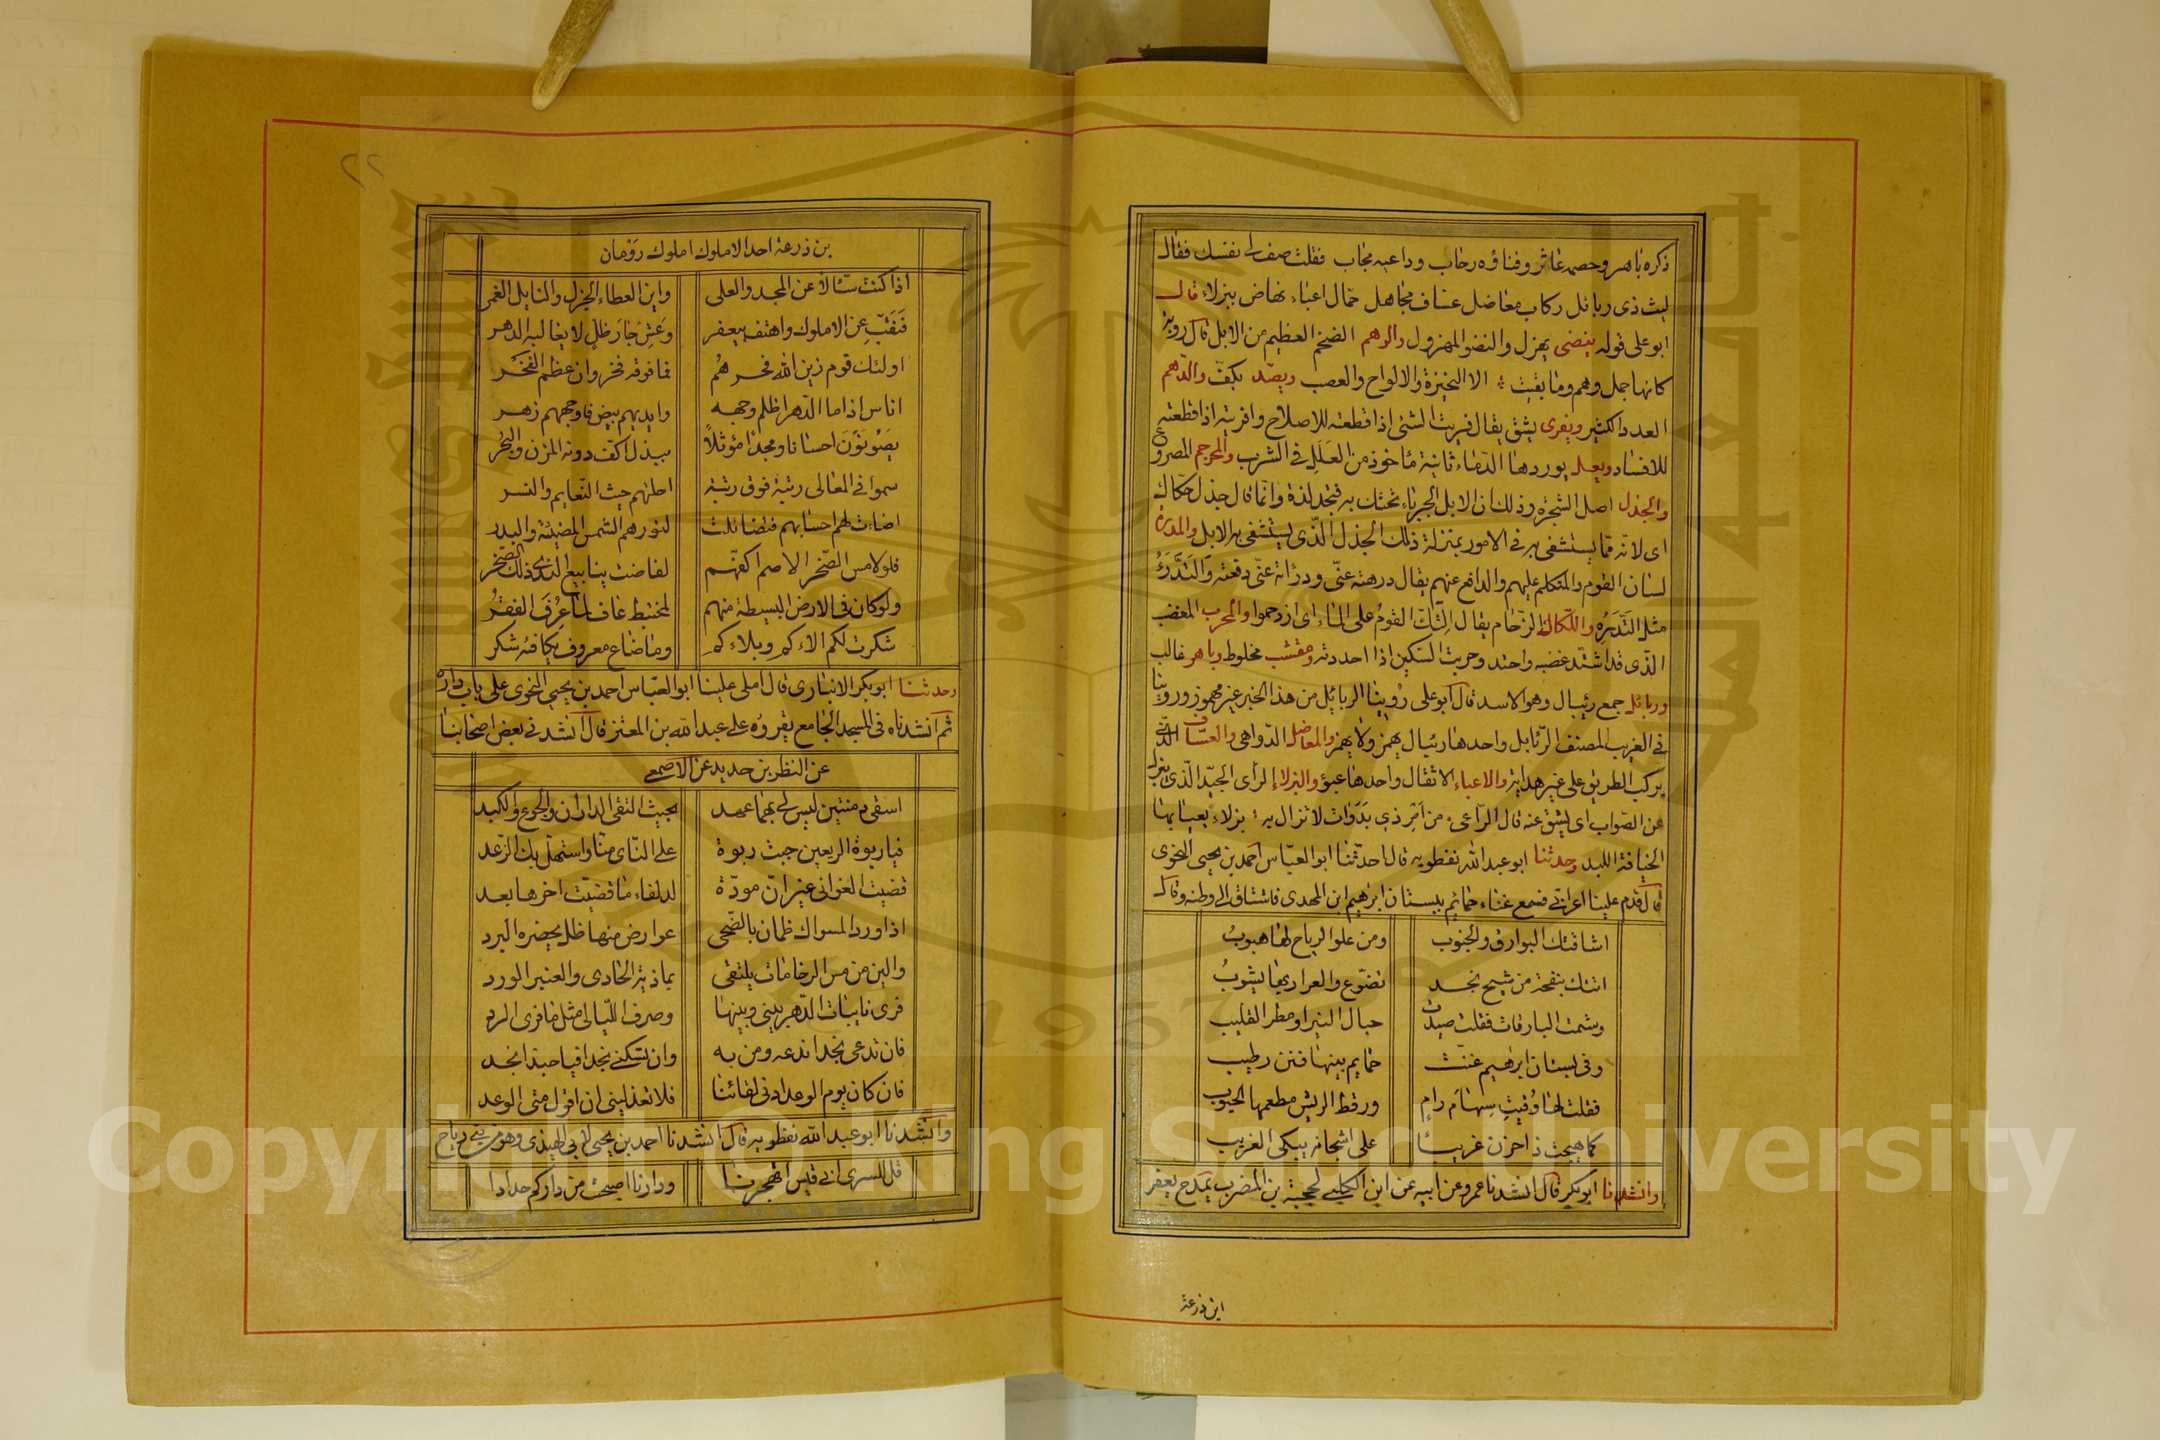 ذكره باهر وخصمه عاثر وفناؤه رحاب وداعيه مجاب فقلت صف لي نفسك فقال
ليث ذى ربائل ركاب معاضل عساف مجاهل حمال اعباء نهاض ببزلاء قال
ابو على قوله ينضى يهزل والنضو المهزول والوهم الضخم العظيم من الابل قال ذو
كانها جمل وهم وما بقيت الا النحيزة والالواح والعصب ويصد يكف والدهم
العدد الكثير ويفرى يشق يقال فريت الشئ اذا قطعته للاصلاح وافريته اذا قطعته
للافساد ويعل يوردها الدماء ثانية ماخوذ من العلل فى الشرب والمرجم
والجذل اصل الشجرة وذلك ان الابل الجرباء تحتك به فتجد لذة وانما قال جذل حكاك
اى لانه مما يستشفى به فى الامور بمنزلة ذلك الجذل الذى يستشفى به الابل والمدره
لسان القوم والمتكلم عليهم والدافع عنهم يقال درهته عنى ودراته عنى دفعته والتدرء
مثل التدره واللكاك الزحام يقال التك القوم على الماء اى ازدحموا والمحرب المغضب
الذى قد اشتد غضبه واحتد وحربت السكين اذا احددته ومقشب مخلوط وباهر غالب
وربائل جمع رئبال وهو الاسد قال ابو على روينا الربائل من هذا الخبر غير مهموز وروينا
فى الغريب المصنف الرئابل واحدها رئبال يهمز ولا يهمز والمعاضل الدواهى والعساف الذى
يركب الطريق على غير هداية والاعباء الاثقال واحدها عبؤ والبزلاء الراى الجيد الذى
عن الصواب اى يشق عنه قال الراعى من امر ذى بدوات لا تزال به بزلاء يعيا بها
اللبد وحدثنا ابو عبد الله نفطويه قال حدثنا ابو العباس احمد بن يحيى النحوى
قال قدم علينا اعرابى فسمع غناء حمائم ببستان ابرهيم ابن المهدى فاشتاق الى وطنه وقال
اشاقتك البوارق والجنوب ومن علو الرياح لها هبوب
اتتك بنفحة من شيح نجد تضوع والعرار بها يشوب
وشمت البارقات فقلت صيدت جبال البئر او مطر القليب
وفى بستان ابرهيم غنت حمايم بينها فنن رطيب
فقلت لها وقيت سهام رام ورقط الريش مطعمها الجيوب
كما هيجت ذا حزن غريبا على اشجانه يبكى الغريب
وانشدنا ابو بكر قال انشدنا عمرو عن ابيه عن ابن الكلبى لحجية بن المضرب يمدح يعفر
ابن زرعة
بن زرعة احد الاملوك املوك ردمان
اذا كنت سئالا عن المجد والعلى واين العطاء الجزل والنايل الغمر
فنقب عن الاملوك واهتف بيعفر وعش جار ظل لا يغالبه الدهر
اولئك قوم زين الله فخرهم فما فوقه فخر وان عظم الفخر
اناس اذا ما الدهر اظلم وجهه وايديهم بيض واوجههم زهر
يصونون احسابا ومجدا مؤثلا ببذل اكف دونه المزن والبحر
سموا فى المعالى رتبة فوق رتبة احلتهم حيث النعايم والنسر
اضاءت لهم احسابهم فتضائلت لنورهم الشمس المضيئة والبدر
فلو لامس الصخر الاصم اكفهم لفاضت ينابيع الندى ذلك الصخر
ولو كان فى الارض البسيطة منهم لمختبط عاف لما عرف الفقر
شكرت لكم الاءكم وبلاءكم وما ضاع معروف يكافئه شكر
وحدثنا ابو بكر الانبارى قال املى علينا ابو العباس احمد بن يحيى النحوى على باب داره
ثم انشدناه فى المسجد الجامع يقروه على عبد الله بن المعتز قال انشدنى بعض اصحابنا
عن النظر بن حديد عن الاصمعى
اسقى دمنتين ليس لى بهما عهد بحيث التقى الداران والجرع والكبد
فيا ربوة الربعين حييت ربوة على الناى منا واستهل بك الرعد
قضيت الغوانى غير ان مودة لدلفاء ما قضيت اخرها بعد
اذا ورد المسواك ظمان بالضحى عوارض منها ظل يخصره البرد
والين من مس الرخامات يلتقى بماذية الحادى والعنبر الورد
فرى نايبات الدهر بينى وبينها وصرف الليالى مثل ما فرى البرد
فان تدعى نجدا ندعه ومن به وان تسكنى نجدا فيا حبذا نجد
فان كان يوم الوعد ادنى لقائنا فلا تعذلينى ان اقول متى الوعد
وانشدنا ابو عبد الله نفطويه قال انشدنا احمد بن يحيى لابى الهيذى وهو من بنى رياح
قل للسرى ابى قيس اتهجرنا ودارنا اصبحت من داركم جددا
1957
Copyright © King Saud University